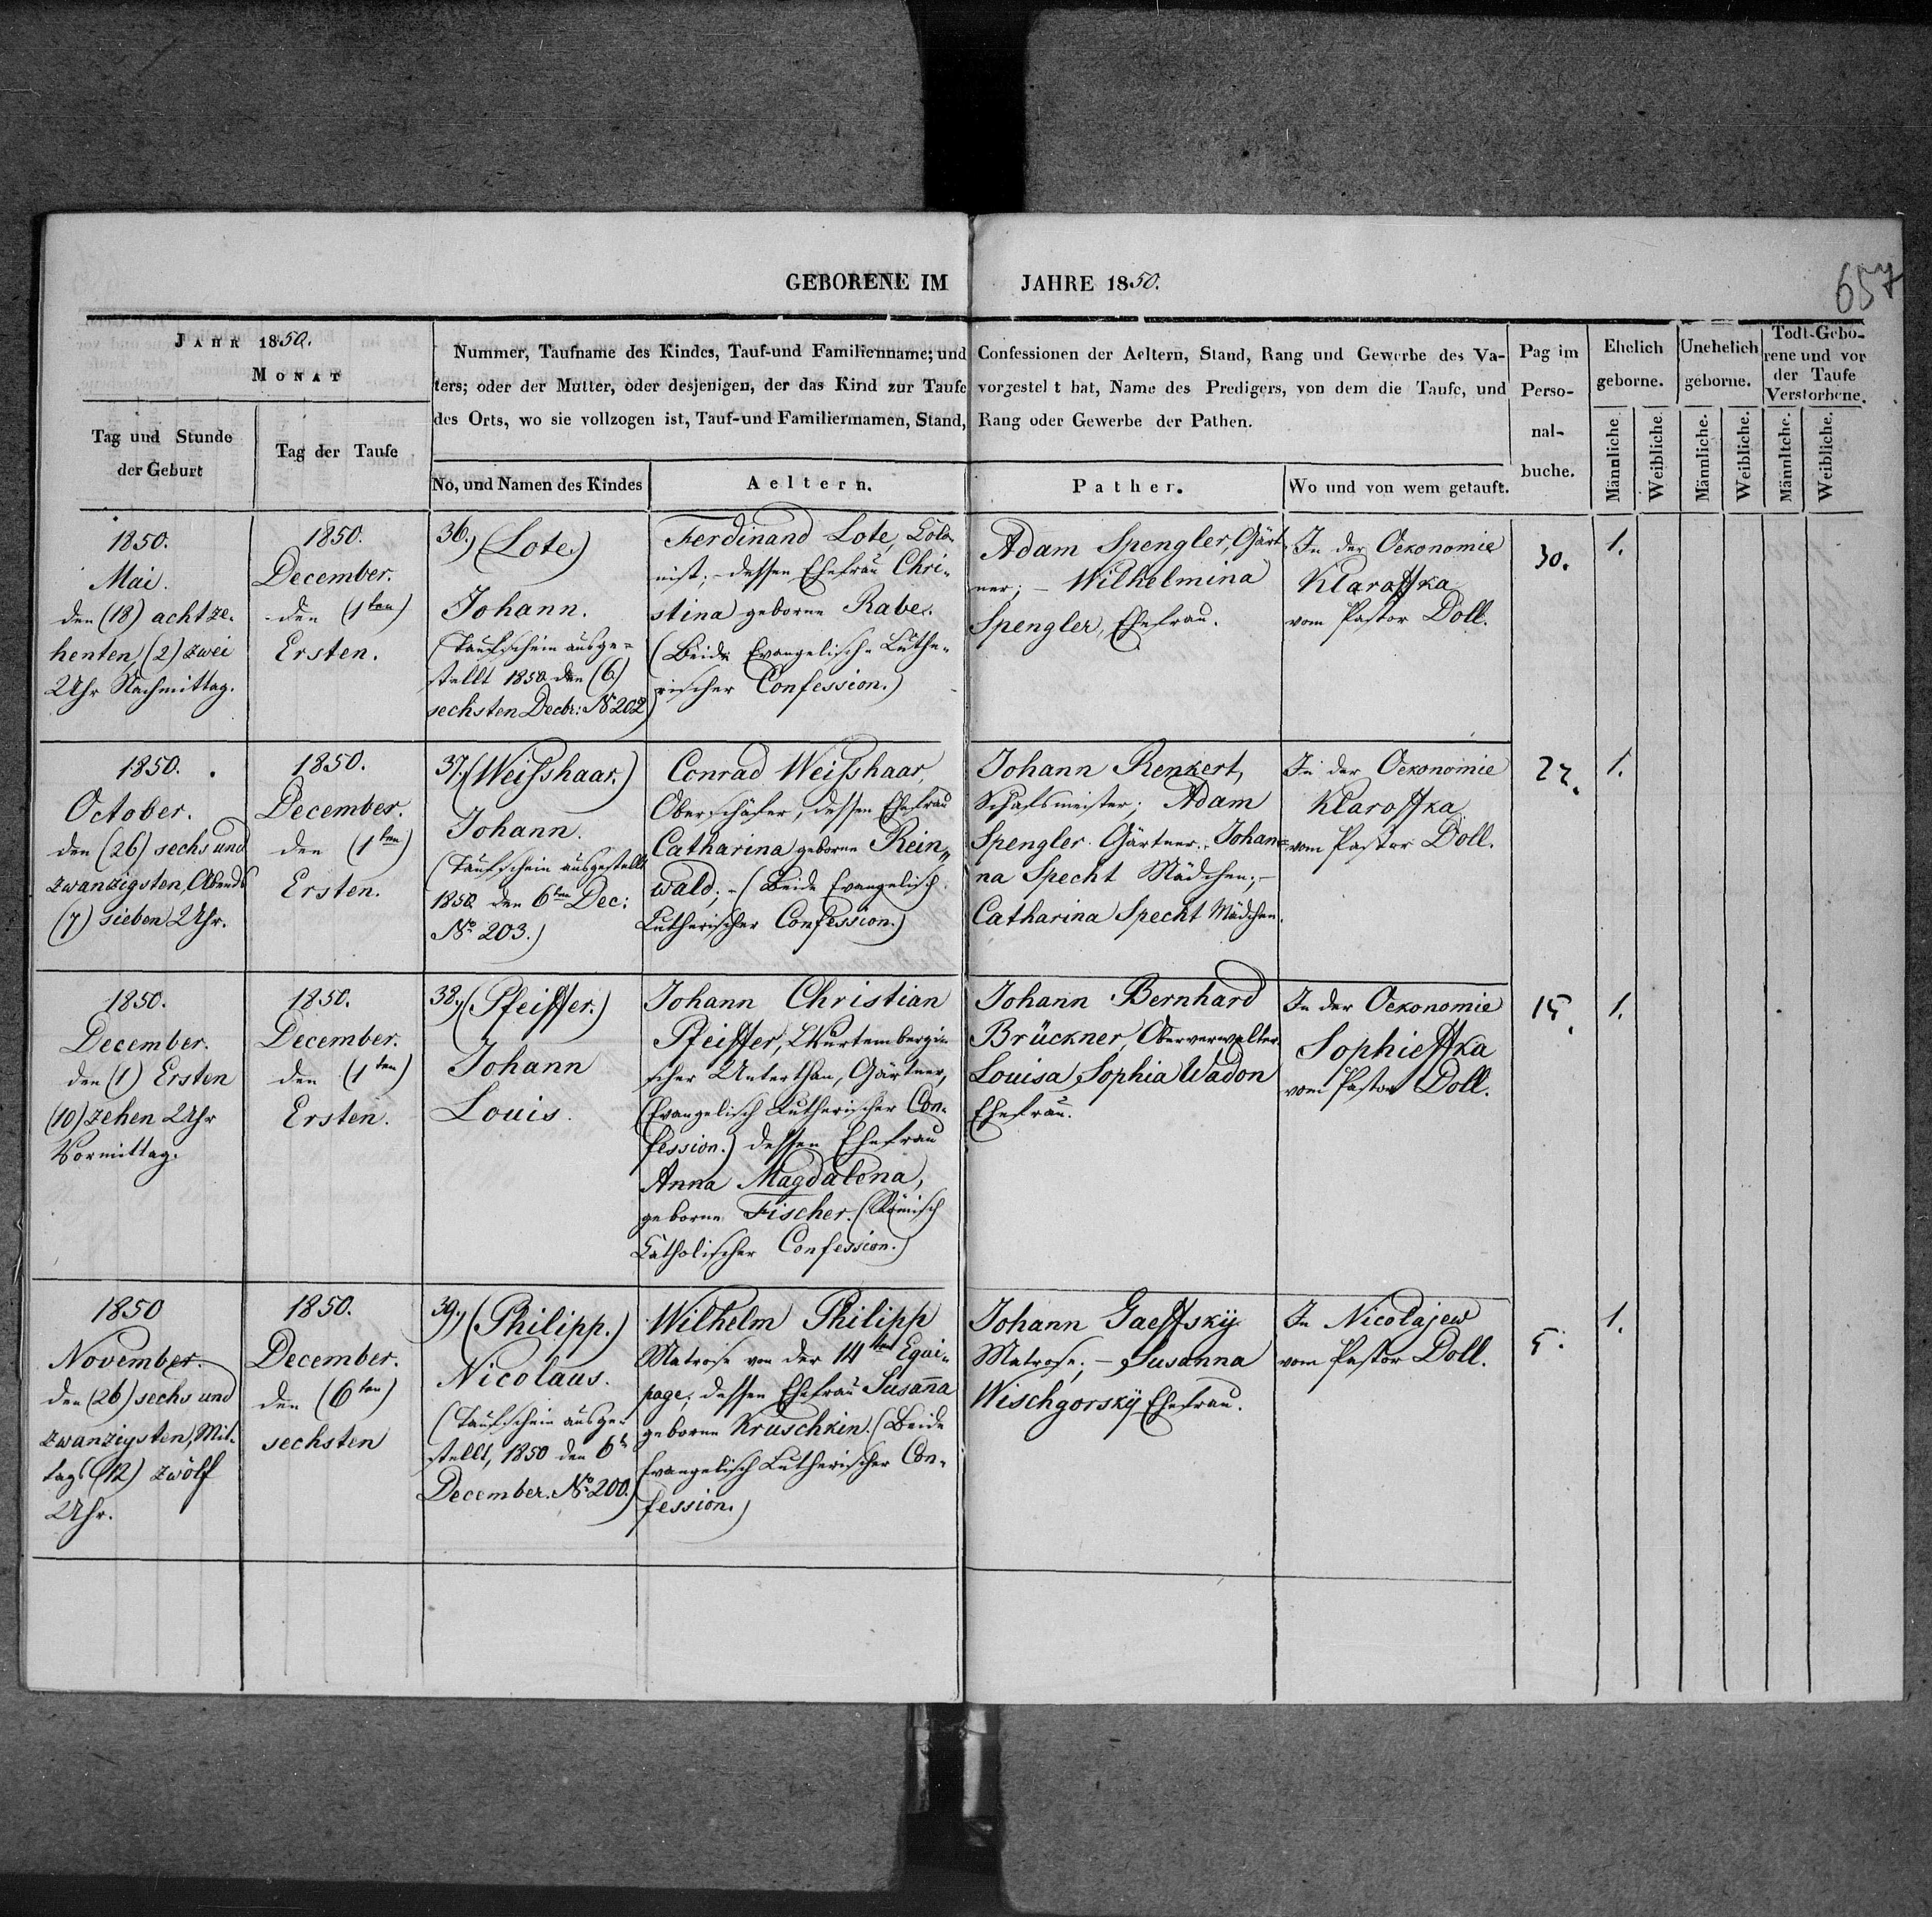 GEBORENE IM JAHRE 1850.
657
JAHR 1850.
MONAT
Tag und Stunde
der Geburt
Tag der Taufe
Nummer, Taufname des Kindes, Tauf-und Familienname; und Confessionen der Aeltern, Stand, Rang und Gewerbe des Va-
ters; oder der Mutter, oder desjenigen, der das Kind zur Taufe vorgestel t hat, Name des Predigers, von dem die Taufe, und
des Orts, wo sie vollzogen ist, Tauf-und Familiermamen, Stand, Rang oder Gewerbe der Pathen.
No, und Namen des Kindes
Aeltern.
Pather.
Wo und von wem getauft.
Pag im
Perso-
nal-
buche.
Ehelich
geborne.
Unehelich
geborne.
Todt-Gebo-
rene und vor
der Taufe
Verstorbene.
Männliche.
Weibliche.
Männliche.
Weibliche.
Männltche.
Weibliche.
1850.
Mai.
den (18) achtze-
henten, (2) zwei
Uhr Nachmittag.
1850.
December.
den (1ten)
Ersten.
36.) (Lote.)
Johann.
(Taufschein ausge-
stellt 1850 den (6)
sechsten Decbr: № 202)
Ferdinand Lote, Colo-
nist; dessen Ehefrau Chri-
stina geborne Rabe.
(Beide Evangelisch-Luthe-
rischer Confession.)
Adam Spengler, Gärt-
ner; – Wilhelmina
Spengler, Ehefrau.
In der Oekonomie
Klaroffka
vom Pastor Doll.
30.
1.
1850.
October.
den (26) sechs und
zwanzigsten, Abends
(7) sieben Uhr.
1850.
December.
den (1ten)
Ersten.
37.) (Weisshaar.)
Johann.
(Taufschein ausgestellt
1850 den 6ten Dec:
No 203.)
Conrad Weisshaar,
Oberschäfer, dessen Ehefrau
Catharina geborne Rein-
wald; – (Beide Evangelisch
Lutherischer Confession.)
Johann Renkert,
Schafsmeister; Adam
Spengler Gärtner. Johan-
na Specht Mädchen; –
Catharina Specht Mädchen.
In der Oekonomie
Klaroffka
vom Pastor Doll.
22.
1.
1850.
December.
den (1) Ersten
(10) zehen Uhr
Vormittag.
1850.
December.
den (1ten)
Ersten.
38.) (Pfeiffer.)
Johann
Louis.
Johann Christian
Pfeiffer, Würtembergi-
scher Unterthan, Gärtner,
(Evangelisch Lutherischer Con-
fession.) dessen Ehefrau
Anna Magdalena,
geborne Fischer. (Römisch
Catholischer Confession.)
Johann Bernhard
Brückner, Oberverwalter.
Louisa Sophia Wadon
Ehefrau.
In der Oekonomie
Sophieffka
vom Pastor Doll.
15.
1.
1850
November.
den (26) sechs und
zwanzigsten, Mit-
tags (12) zwölf
Uhr.
1850.
December.
den (6ten)
sechsten
39.) (Philipp.)
Nicolaus.
(Taufschein ausge-
stellt, 1850 den 6t
December. No 200.)
Wilhelm Philipp
Matrose von der 14ten Equi-
page; dessen Ehefrau Susanna
geborne Kruschkin. (Beide
Evangelisch Lutherischer Con-
fession.)
Johann Gaeffsky
Matrose; – Susanna
Wischgorsky Ehefrau.
In Nicolajew
vom Pastor Doll.
5.
1.